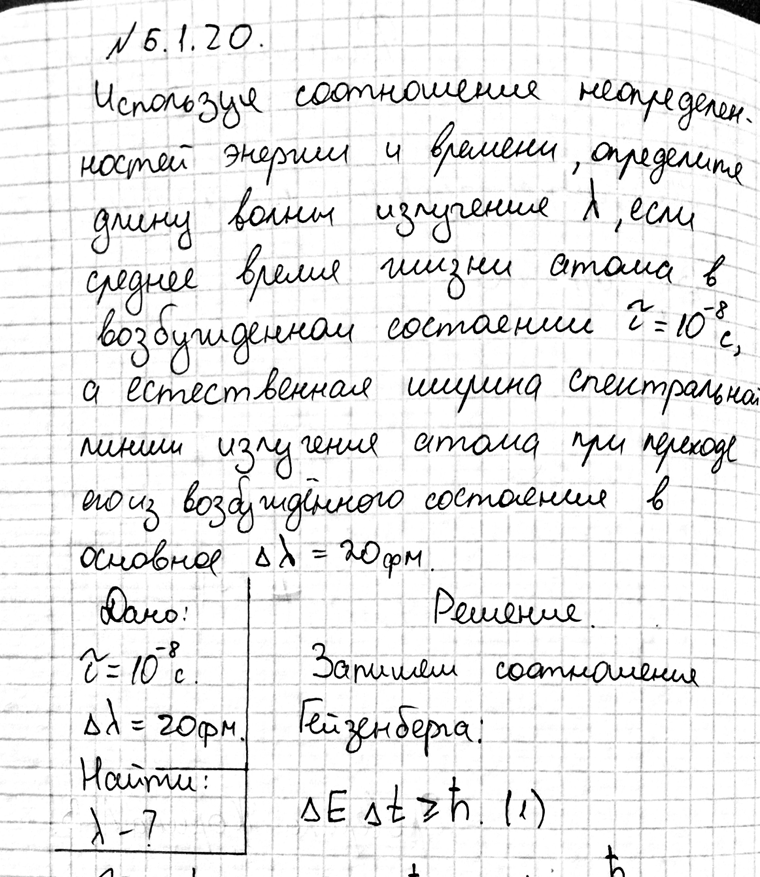 № 6.1.20.
Используя соотношение неопределен-
ностей энергии и времени, определите
длину волны излучения λ, если
среднее время жизни атома в
возбужденном состоянии τ = 10⁻⁸ с,
а естественная ширина спектральной
линии излучения атома при переходе
его из возбуждённого состояния в
основное Δλ = 20 фм.
Дано:
τ = 10⁻⁸ с.
Δλ = 20 фм.
Найти:
λ - ?
Решение.
Запишем соотношения
Гейзенберга:
ΔE Δt ≥ ħ. (1)